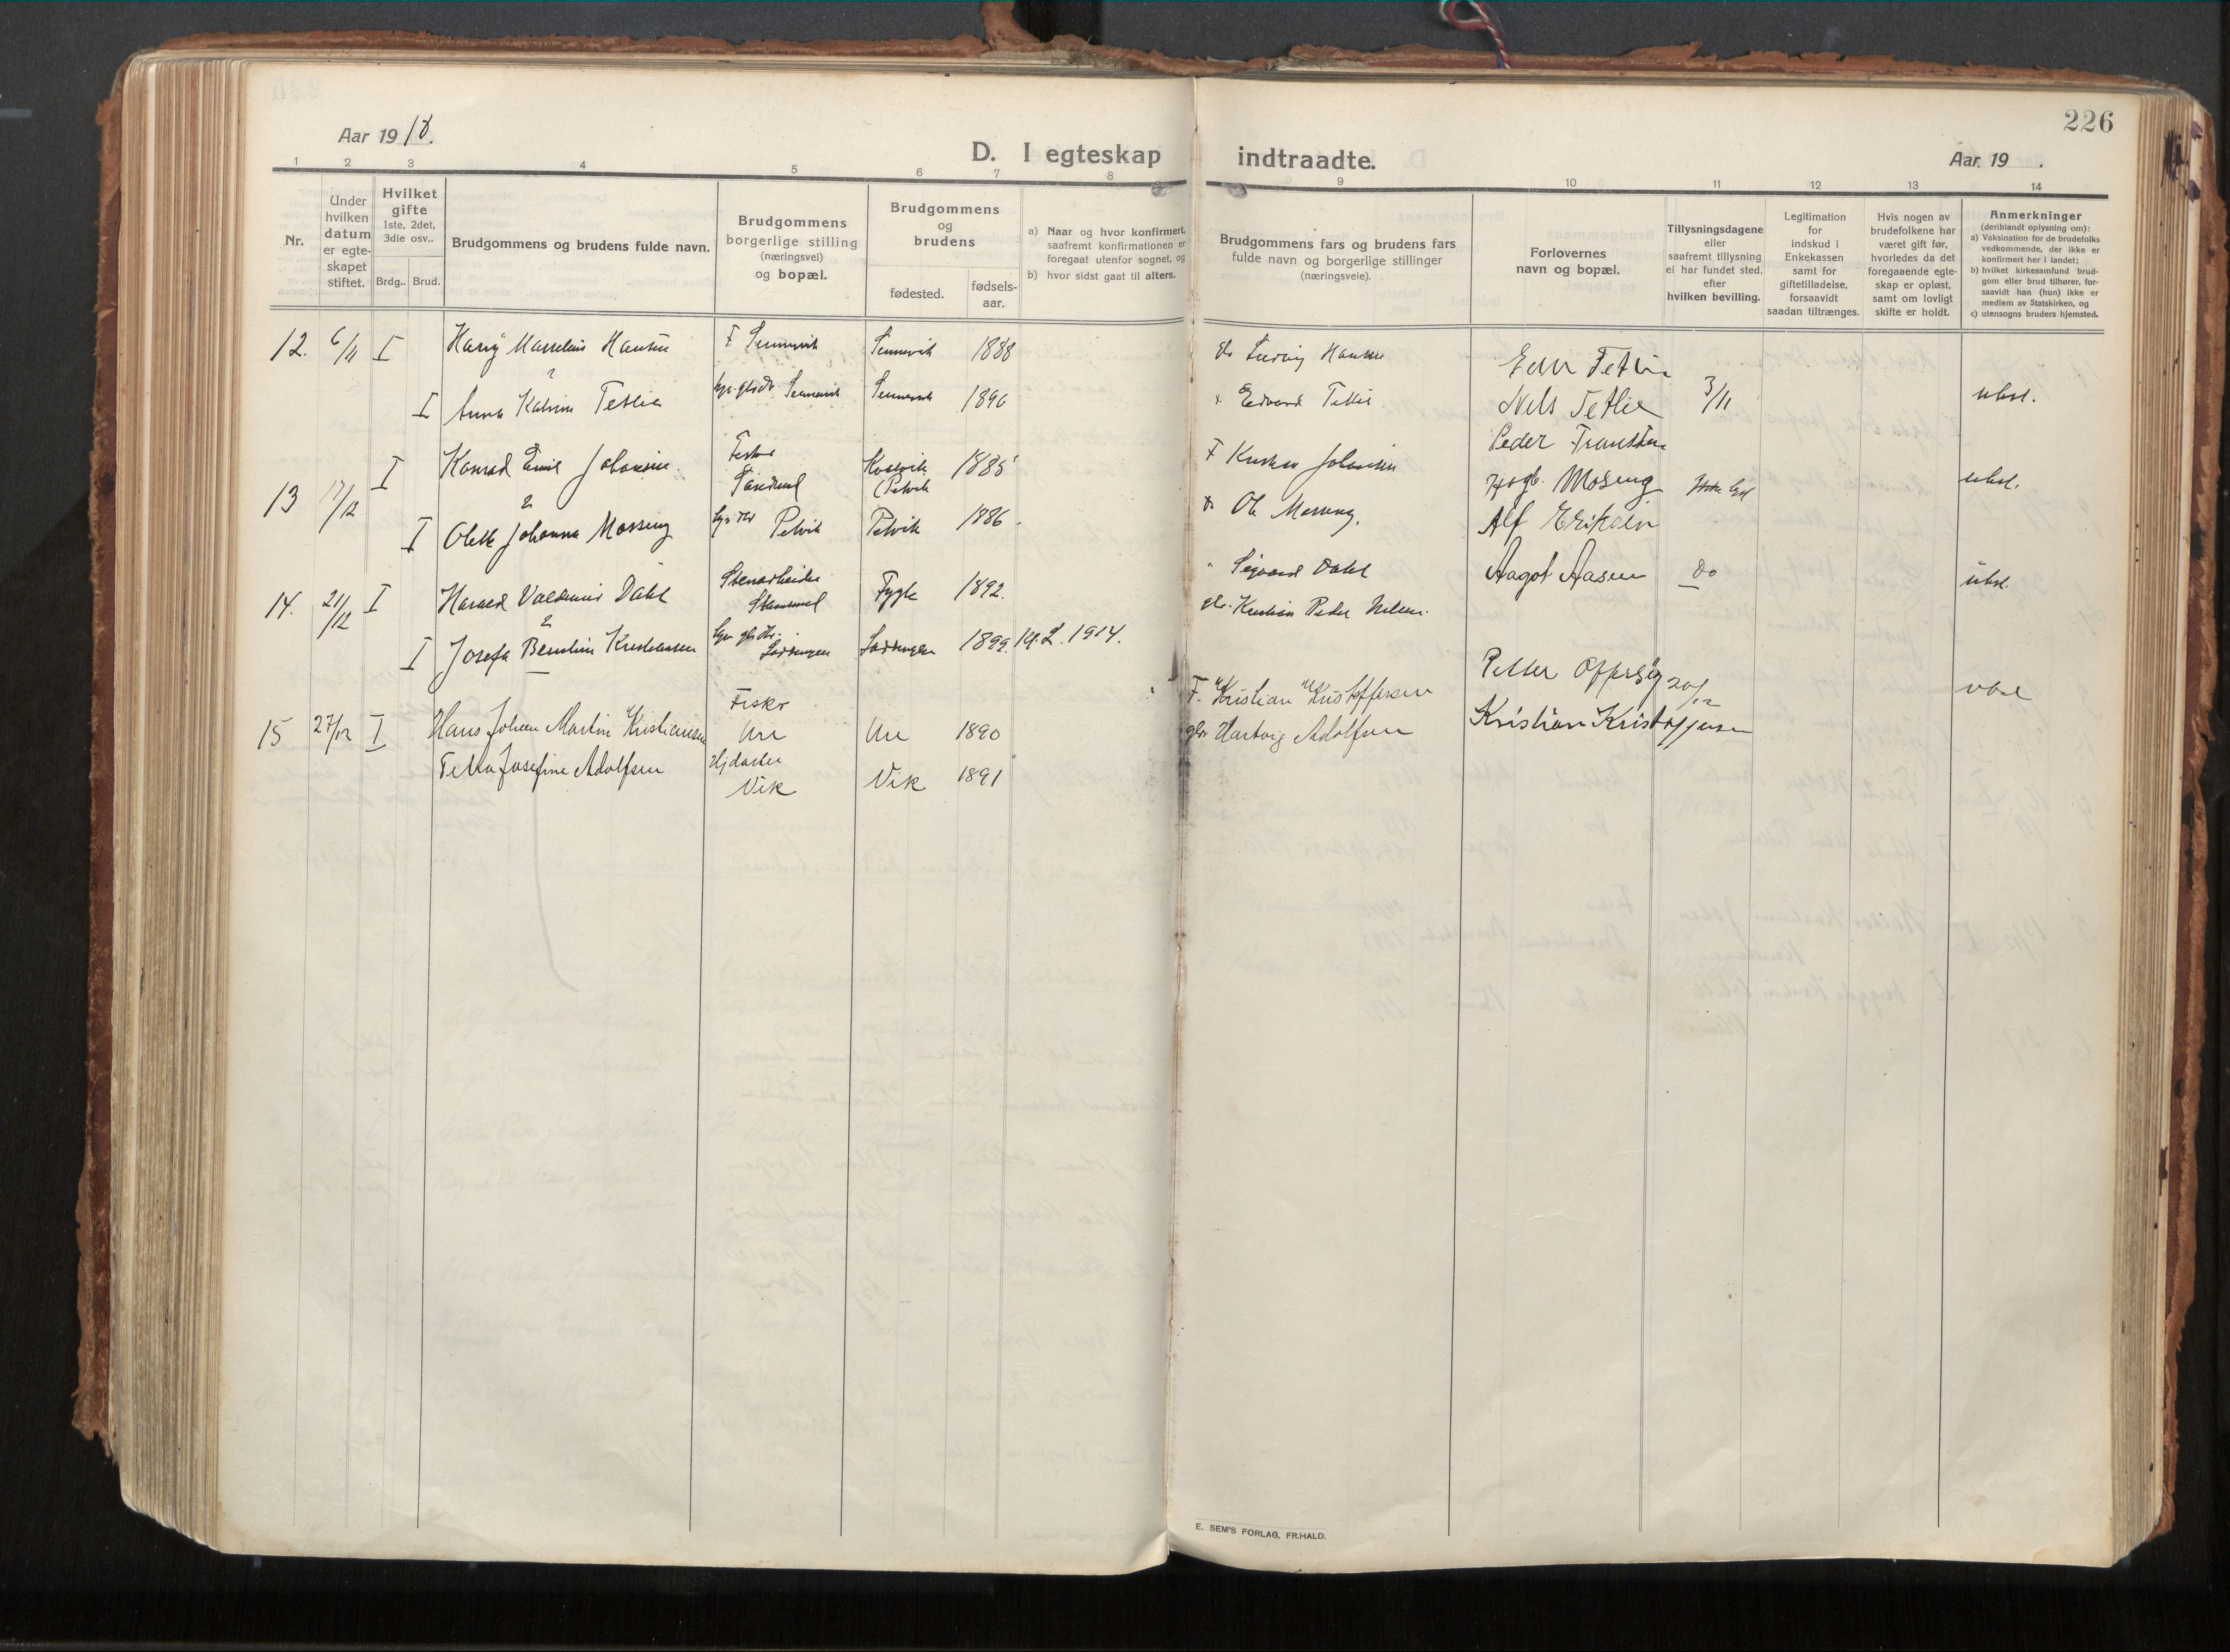 226
Aar 1918.
D. I egteskap indtraadte.
Aar. 19 .
1 2 3 4 5 6 7 8 9 10 11 12 13 14
Nr.
Under hvilken datum er egte-skapet stiftet.
Hvilket gifte
1ste, 2det, 3die osv..
Brdg.. Brud.
Brudgommens og brudens fulde navn.
Brudgommens borgerlige stilling
(næringsvei)
og bopæl.
Brudgommens og brudens
fødested. fødsels-aar.
a) Naar og hvor konfirmert, saafremt konfirmationen er foregaat utenfor sognet, og
b) hvor sidst gaat til alters.
Brudgommens fars og brudens fars
fulde navn og borgerlige stillinger
(næringsveie).
Forlovernes
navn og bopæl.
Tillysningsdagene
eller
saafremt tillysning
ei har fundet sted.
efter
hvilken bevilling.
Legitimation
for
indskud i
Enkekassen
samt for
giftetilladelse,
forsaavidt
saadan tiltrænges.
Hvis nogen av
brudefolkene har
været gift før,
hvorledes da det
foregaaende egte-
skap er opløst,
samt om lovligt
skifte er holdt.
Anmerkninger
(deriblandt oplysning om):
a) Vaksination for de brudefolks
vedkommende, der ikke er
konfirmert her i landet;
b) hvilket kirkesamfund brud-
gom eller brud tilhører, for-
saavidt han (hun) ikke er
medlem av Statskirken, og
c) utensogns bruders hjemsted.
12. 6/11 I Harry Marselius Hansen F Sennesvik Sennesvik 1888 Ludvig Hansen
I Anna Katrine Tetlie Sennesvik Sennesvik 1896 Edvard Tetlie Nils Tetlie 3/11 ubesl.
13 17/12 I Konrad Emil Johansen Fisker 1885 F Kristian Johansen Peder ubesl.
I Olette Johanna Mossing Petvik Petvik 1886 Ole Mossing Alf Eriksen
14. 21/12 I Harald Valdemar Dahl Stenarbeider Stamsund Fygle 1892. Sigvard Dahl Aagot Aasen Do ubesl.
I Josefa Kristiansen Lødingen Lødingen 1899. 1914. Kristian Peder Nilsen.
15 27/12 I Hans Johan Martin Kristiansen Fisker Ure Ure 1890 F. Kristian Kristoffersen Petter 20/12
Josefine Adolfsen Vik Vik 1891 Hartvig Adolfsen Kristian Kristoffersen
E. SEM'S FORLAG, FR.HALD.